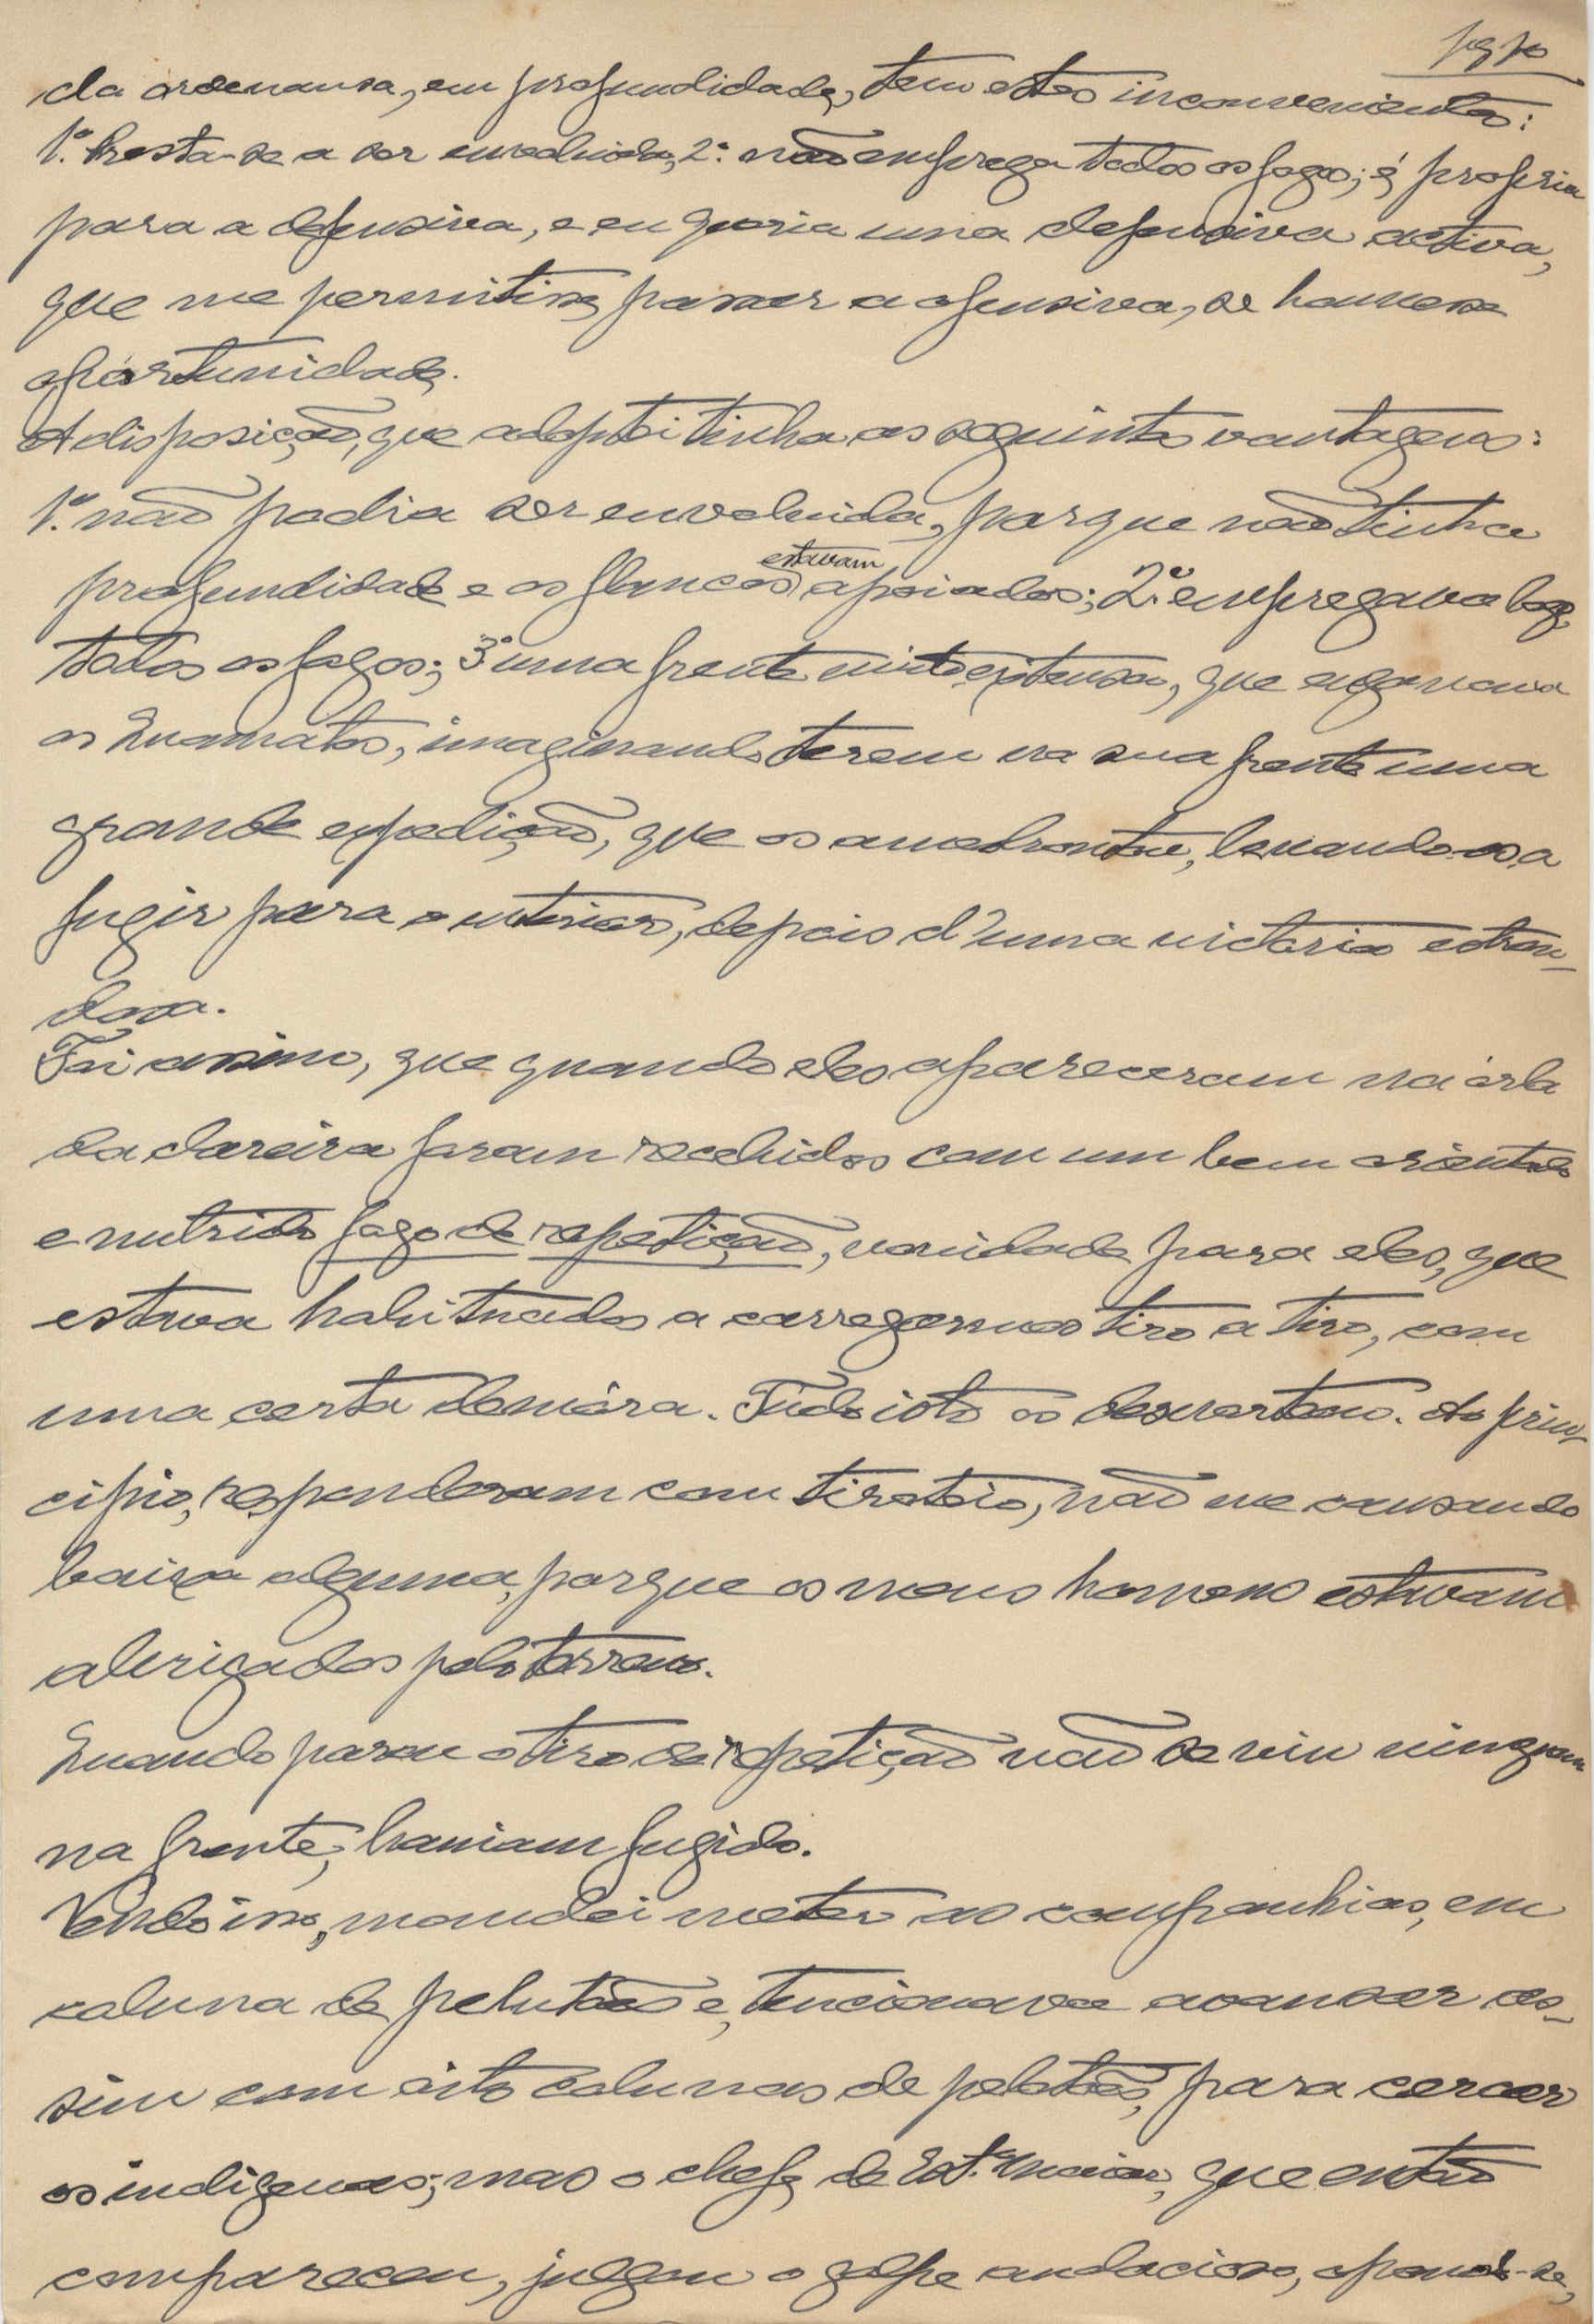 da ordenança, em profundidade, tem estes inconvenientes:
1.º Presta-se a ser envolvida, 2.º não emprega todos os fogos; é propria
para a defensiva, e eu queria uma defensiva activa,
que me permitisse passar a ofensiva, se houvesse
opórtunidade.
A disposição, que adoptei tinha as seguintes vantagens:
1.º não podia ser envolvida, porque não tinha
profundidade e os flancos estavam apoiados; 2.º empregava logo
todos os fogos; 3º uma frente muito extensa, que enganava
os Quamatos, imaginando terem na sua frente uma
grande expedição, que os amedrontou, levando-os a
fugir para o interior, depois d'uma victoria estron-
dosa.
Foi assim, que quando eles apareceram na órla
da clareira foram recebidos com um bem orientado
e nutrido fogo de repetição, novidade para eles, que
estava habituados a carregarmos tiro a tiro, com
uma certa demóra. Tudo isto os desnorteou. Ao prin-
cipio, responderam com tiroteio, não me causando
baixa alguma, porque os meus homens estavam
abrigados pelo terreno.
Quando parou o tiro de repetição não se viu ninguem
na frente; haviam fugido.
Vendo isso, mandei meter as companhias, em
coluna de pelutões e, tencionava avançar as-
sim com oito colunas de pelotões, para cercar
os indigenas; mas o chefe de Est.º Maior, que então
compareceu, julgou o golpe audacioso, opondo-se,